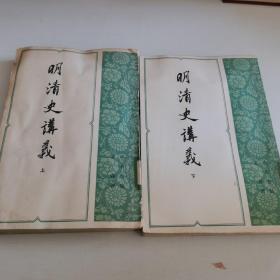 明清史講義
上
明清史講義
下